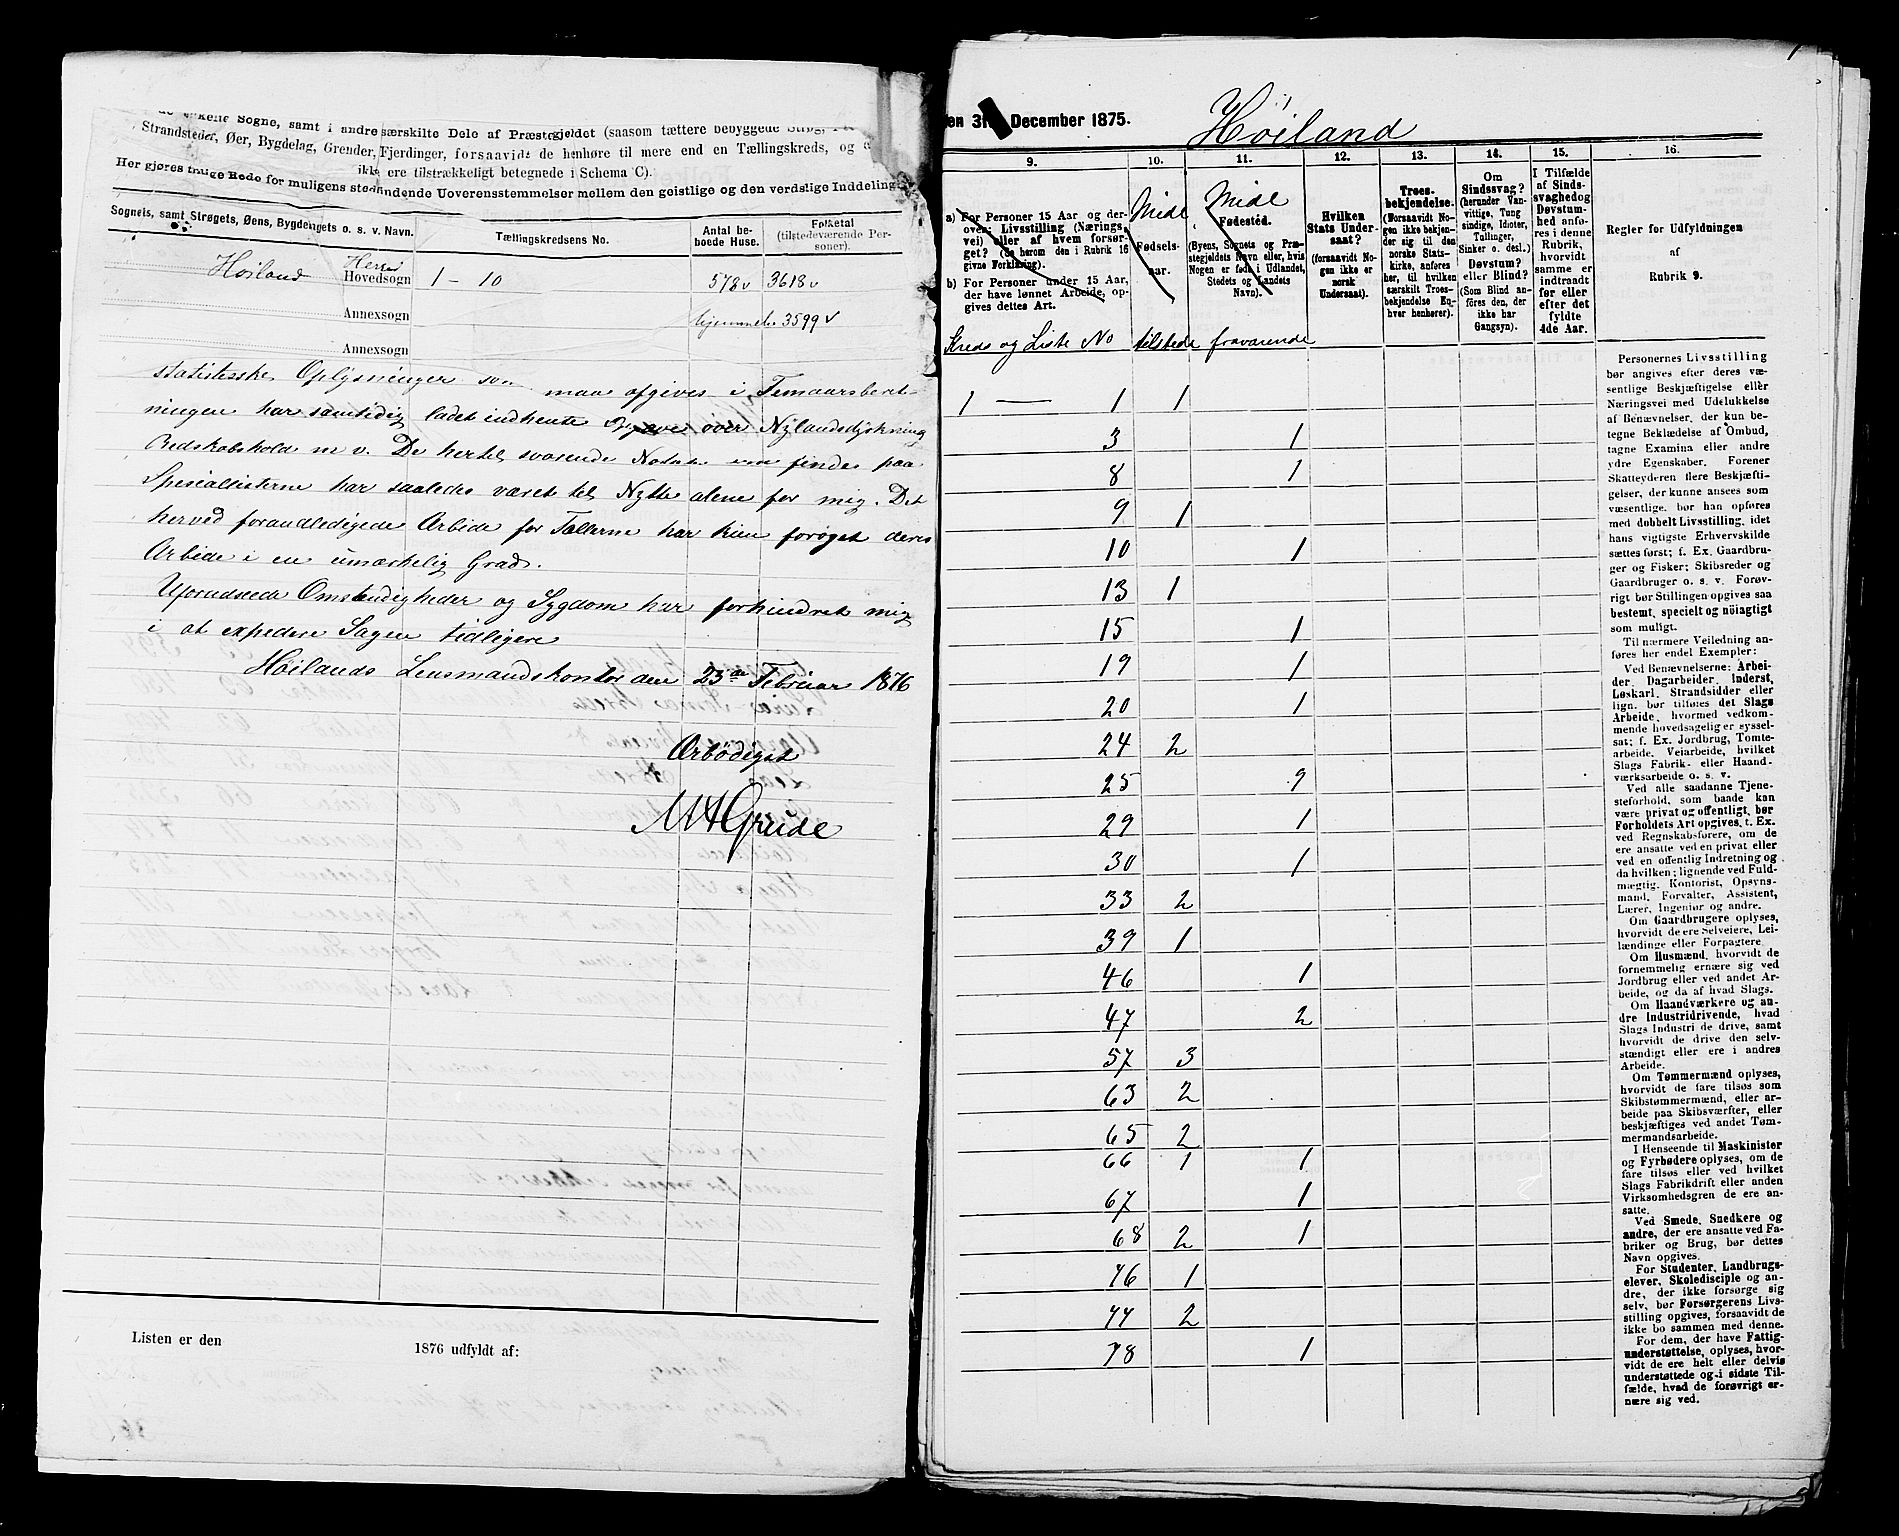 Sogne, samt i andre særskilte Dele af Præstegjeldet (saasom tættere bebyggede Strøg,
Strandsteder, Øer, Bygdelag, Grender, Fjerdinger, forsaavidt de henhøre til mere end en Tællingskreds, og
ikke ere tilstrækkeligt betegnede i Schema C).
Her gjøres tillige Rede for muligens stedfindende Uoverensstemmelser mellem den geistlige og den verdslige Inddeling
Sognets, samt Strøgets, Øens, Bygdelagets o. s. v. Navn.
Tællingskredsens No.
Antal beboede Huse.
Folketal
(tilstedeværende Personer).
Høiland Herred
Hovedsogn 1 - 10 578 v 3618 v
Annexsogn hjemmeh. 3599 v
Annexsogn
statistiske Oplysninger som maa afgives i Femaarsberet-
ningen har samtidig ladet indhente Opgave over Nylandsdyrkning
Redskabshold m v. De hertil svarende Notater som findes paa
Speciallisterne har saaledes været til Nytte alene for mig. Det
herved foranledigede Arbide for Tællerne har kun forøget deres
Arbide i en umærkelig Grad.
Uforudsede Omstændigheder og Sygdom har forhindret mig
i at expedere Sagen tidligere
Høilands Lensmandskontor den 23de Februar 1876
Ærbødigst
M A Grude
Listen er den 1876 udfyldt af:
1
den 31 December 1875.
Høiland
9. 10. 11. 12. 13. 14. 15. 16.
a) For Personer 15 Aar og derover: Livsstilling (Næringsvei) eller af hvem forsørget? (Se herom den i Rubrik 16 givne Forklaring).
b) For Personer under 15 Aar, der have lønnet Arbeide, opgives dettes Art.
Midl
Fødselsaar.
Midl
Fødested.
(Byens, Sognets og Præstegjeldets Navn eller, hvis Nogen er født i Udlandet, Stedets og Landets Navn).
Hvilken Stats Undersaat?
(forsaavidt Nogen ikke er norsk Undersaat).
Troesbekjendelse.
(Forsaavidt Nogen ikke bekjender sig til den norske Statskirke, anføres her, til hvilket særskilt Troesbekjendelse Enhver henhører).
Om Sindssvag? (herunder Vanvittige, Tung sindige, Idioter, Tullinger, Sinker o. desl.) Døvstum? eller Blind? (Som Blind anføres den, der ikke har Gangsyn).
I Tilfælde af Sindssvaghed og Døvstumhed anføres i denne Rubrik, hvorvidt samme er indtraadt før eller efter det fyldte 4de Aar.
Regler for Udfyldningen
af
Rubrik 9.
Kreds og Liste No tilstede fraværende
1 — 1 1
3 1
8 1
9 1
10 1
13 1
15 1
19 1
20 1
24 2
25 9
29 1
30 1
33 2
39 1
46 1
47 2
57 3
63 2
65 2
66 1 1
67 1
68 2 1
76 1
77 2
78 1
Personernes Livsstilling
bør angives efter deres væ-
sentlige Beskjæftigelse eller
Næringsvei med Udelukkelse
af Benævnelser, der kun be-
tegne Beklædelse af Ombud,
tagne Examina eller andre
ydre Egenskaber. Forener
Skatteyderen flere Beskjæfti-
gelser, der kunne ansees som
væsentlige, bør han opføres
med dobbelt Livsstilling, idet
hans vigtigste Erhvervskilde
sættes først; f. Ex. Gaardbru-
ger og Fisker; Skibsreder og
Gaardbruger o. s. v. Forøv-
rigt bør Stillingen opgives saa
bestemt, specielt og nøiagtigt
som muligt.
Til nærmere Veiledning an-
føres her endel Exempler:
Ved Benævnelserne: Arbei-
der, Dagarbeider, Inderst,
Løskarl, Strandsidder eller
lign. bør tilføres det Slags
Arbeide, hvormed vedkom-
mende hovedsagelig er syssel-
sat; f. Ex. Jordbrug, Tomte-
arbeide, Veiarbeide, hvilket
Slags Fabrik- eller Haand-
værksarbeide o. s. v.
Ved alle saadanne Tjene-
steforhold, som baade kan
være privat og offentligt, bør
Forholdets Art opgives, t. Ex.
ved Regnskabsførere, om de
ere ansatte ved en privat eller
ved en offentlig Indretning og
da hvilken; lignende ved Fuld-
mægtig, Kontorist, Opsyns-
mand, Forvalter, Assistent,
Lærer, Ingeniør og andre.
Om Gaardbrugere oplyses,
hvorvidt de ere Selveiere, Lei-
lændinge eller Forpagtere.
Om Husmænd, hvorvidt de
fornemmelig ernære sig ved
Jordbrug eller ved andet Ar-
beide, og da af hvad Slags.
Om Haandværkere og an-
dre Industridrivende, hvad
Slags Industri de drive, samt
hvorvidt de drive den selv-
stændigt eller ere i andres
Arbeide.
Om Tømmermænd oplyses,
hvorvidt de fare tilsøs som
Skibstømmermænd, eller ar-
beide paa Skibsværfter, eller
beskjæftiges ved andet Tøm-
mermandsarbeide.
I Henseende til Maskinister
og Fyrbødere oplyses, om de
fare tilsøs eller ved hvilket
Slags Fabrikdrift eller anden
Virksomhedsgren de ere an-
satte.
Ved Smede, Snedkere og
andre, der ere ansatte ved Fa-
briker og Brug, bør dettes
Navn opgives.
For Studenter, Landbrugs-
elever, Skoledisciple og an-
dre, der ikke forsørge sig
selv, bør Forsørgerens Livs-
stilling opgives, forsaavidt de
ikke bo sammen med denne.
For dem, der have Fattig-
understøttelse, oplyses, hvor-
vidt de ere helt eller delvis
understøttede og i sidste Til-
fælde, hvad de forøvrigt er-
nære sig ved.